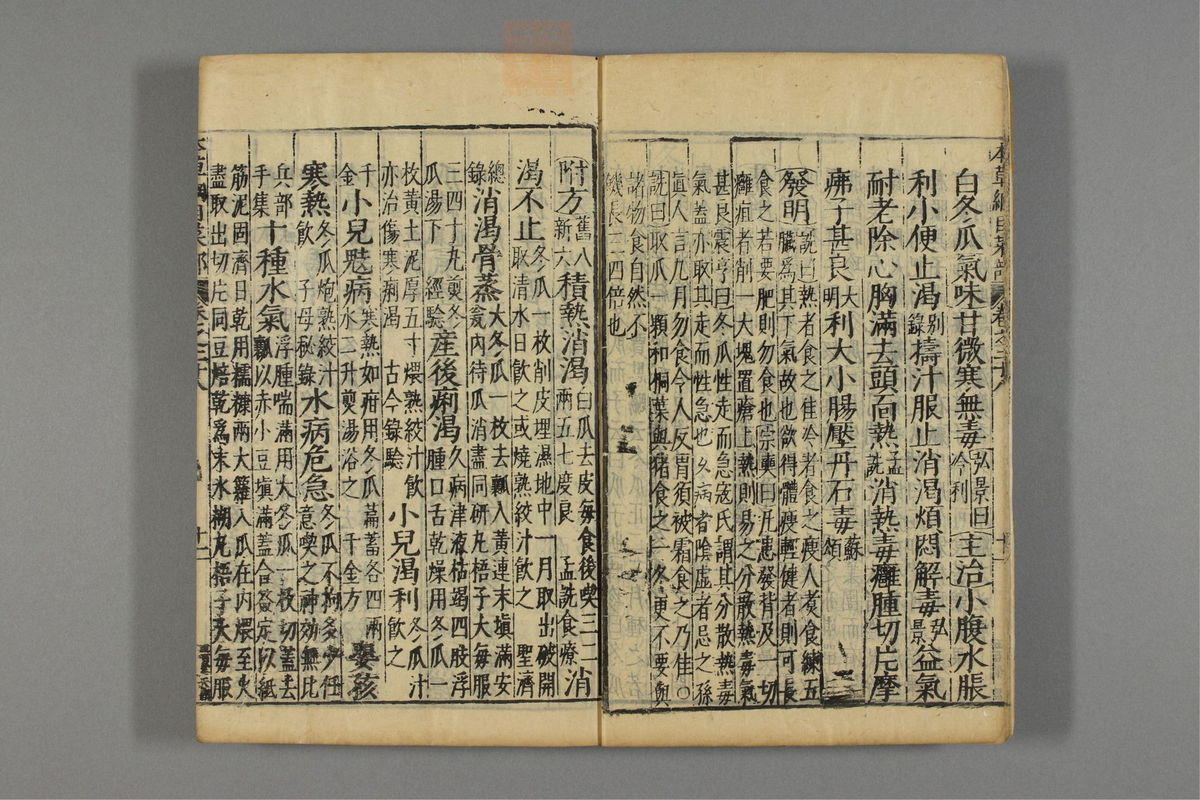 本草綱目菜部 卷之二十八
白冬瓜氣味甘微寒無毒弘景曰冷利主治小腹水脹
利小便止渴別錄擣汁服止消渴煩悶解毒弘景益氣
耐老除心胸滿去頭面熱孟詵消熱毒癰腫切片摩
疿子甚良大明利大小腸壓丹石毒蘇頌
發明詵曰熱者食之佳冷者食之瘦人煮食練五
臟爲其下氣故也欲得體瘦輕健者則可長
食之若要肥則勿食也宗奭曰凡患發背及一切
癰疽者削一大塊置瘡上熱則易之分散熱毒氣
甚良震亨曰冬瓜性走而急寇氏謂其分散熱毒
氣蓋亦取其走而性急也久病者陰虛者忌之孫
眞人言九月勿食令人反胃須被霜食之乃佳○
詵曰取瓜一顆和桐葉與猪食之一冬更不要與
諸物食自然不
饑長三四倍也
附方舊八新六積熱消渴白瓜去皮每食後喫三二兩五七度良 孟詵食療消
渴不止冬瓜一枚削皮埋濕地中一月取出破開取清水日飲之或燒熟絞汁飲之 聖濟
總錄消渴骨蒸大冬瓜一枚去瓤入黃連末塡滿安瓮內待瓜消盡同研丸梧子大每服
三四十丸煎冬瓜湯下 經驗產後痢渴久病津液枯竭四肢浮腫口舌乾燥用冬瓜一
枚黃土泥厚五寸煨熟絞汁飲亦治傷寒痢渴 古今錄驗小兒渴利冬瓜汁飲之
千金小兒鬾病寒熱如疳用冬瓜萹蓄各四兩水二升煎湯浴之 千金方嬰孩
寒熱冬瓜炮熟絞汁飲 子母秘錄水病危急冬瓜不拘多少任意喫之神効無比
兵部手集十種水氣浮腫喘滿用大冬瓜一枚切蓋去瓤以赤小豆塡滿蓋合簽定以紙
筋泥固濟日乾用糯糠兩大籮入瓜在內煨至火
盡取出切片同豆焙乾爲末水糊丸梧子大每服
本草綱目菜部 卷之二十八 十二